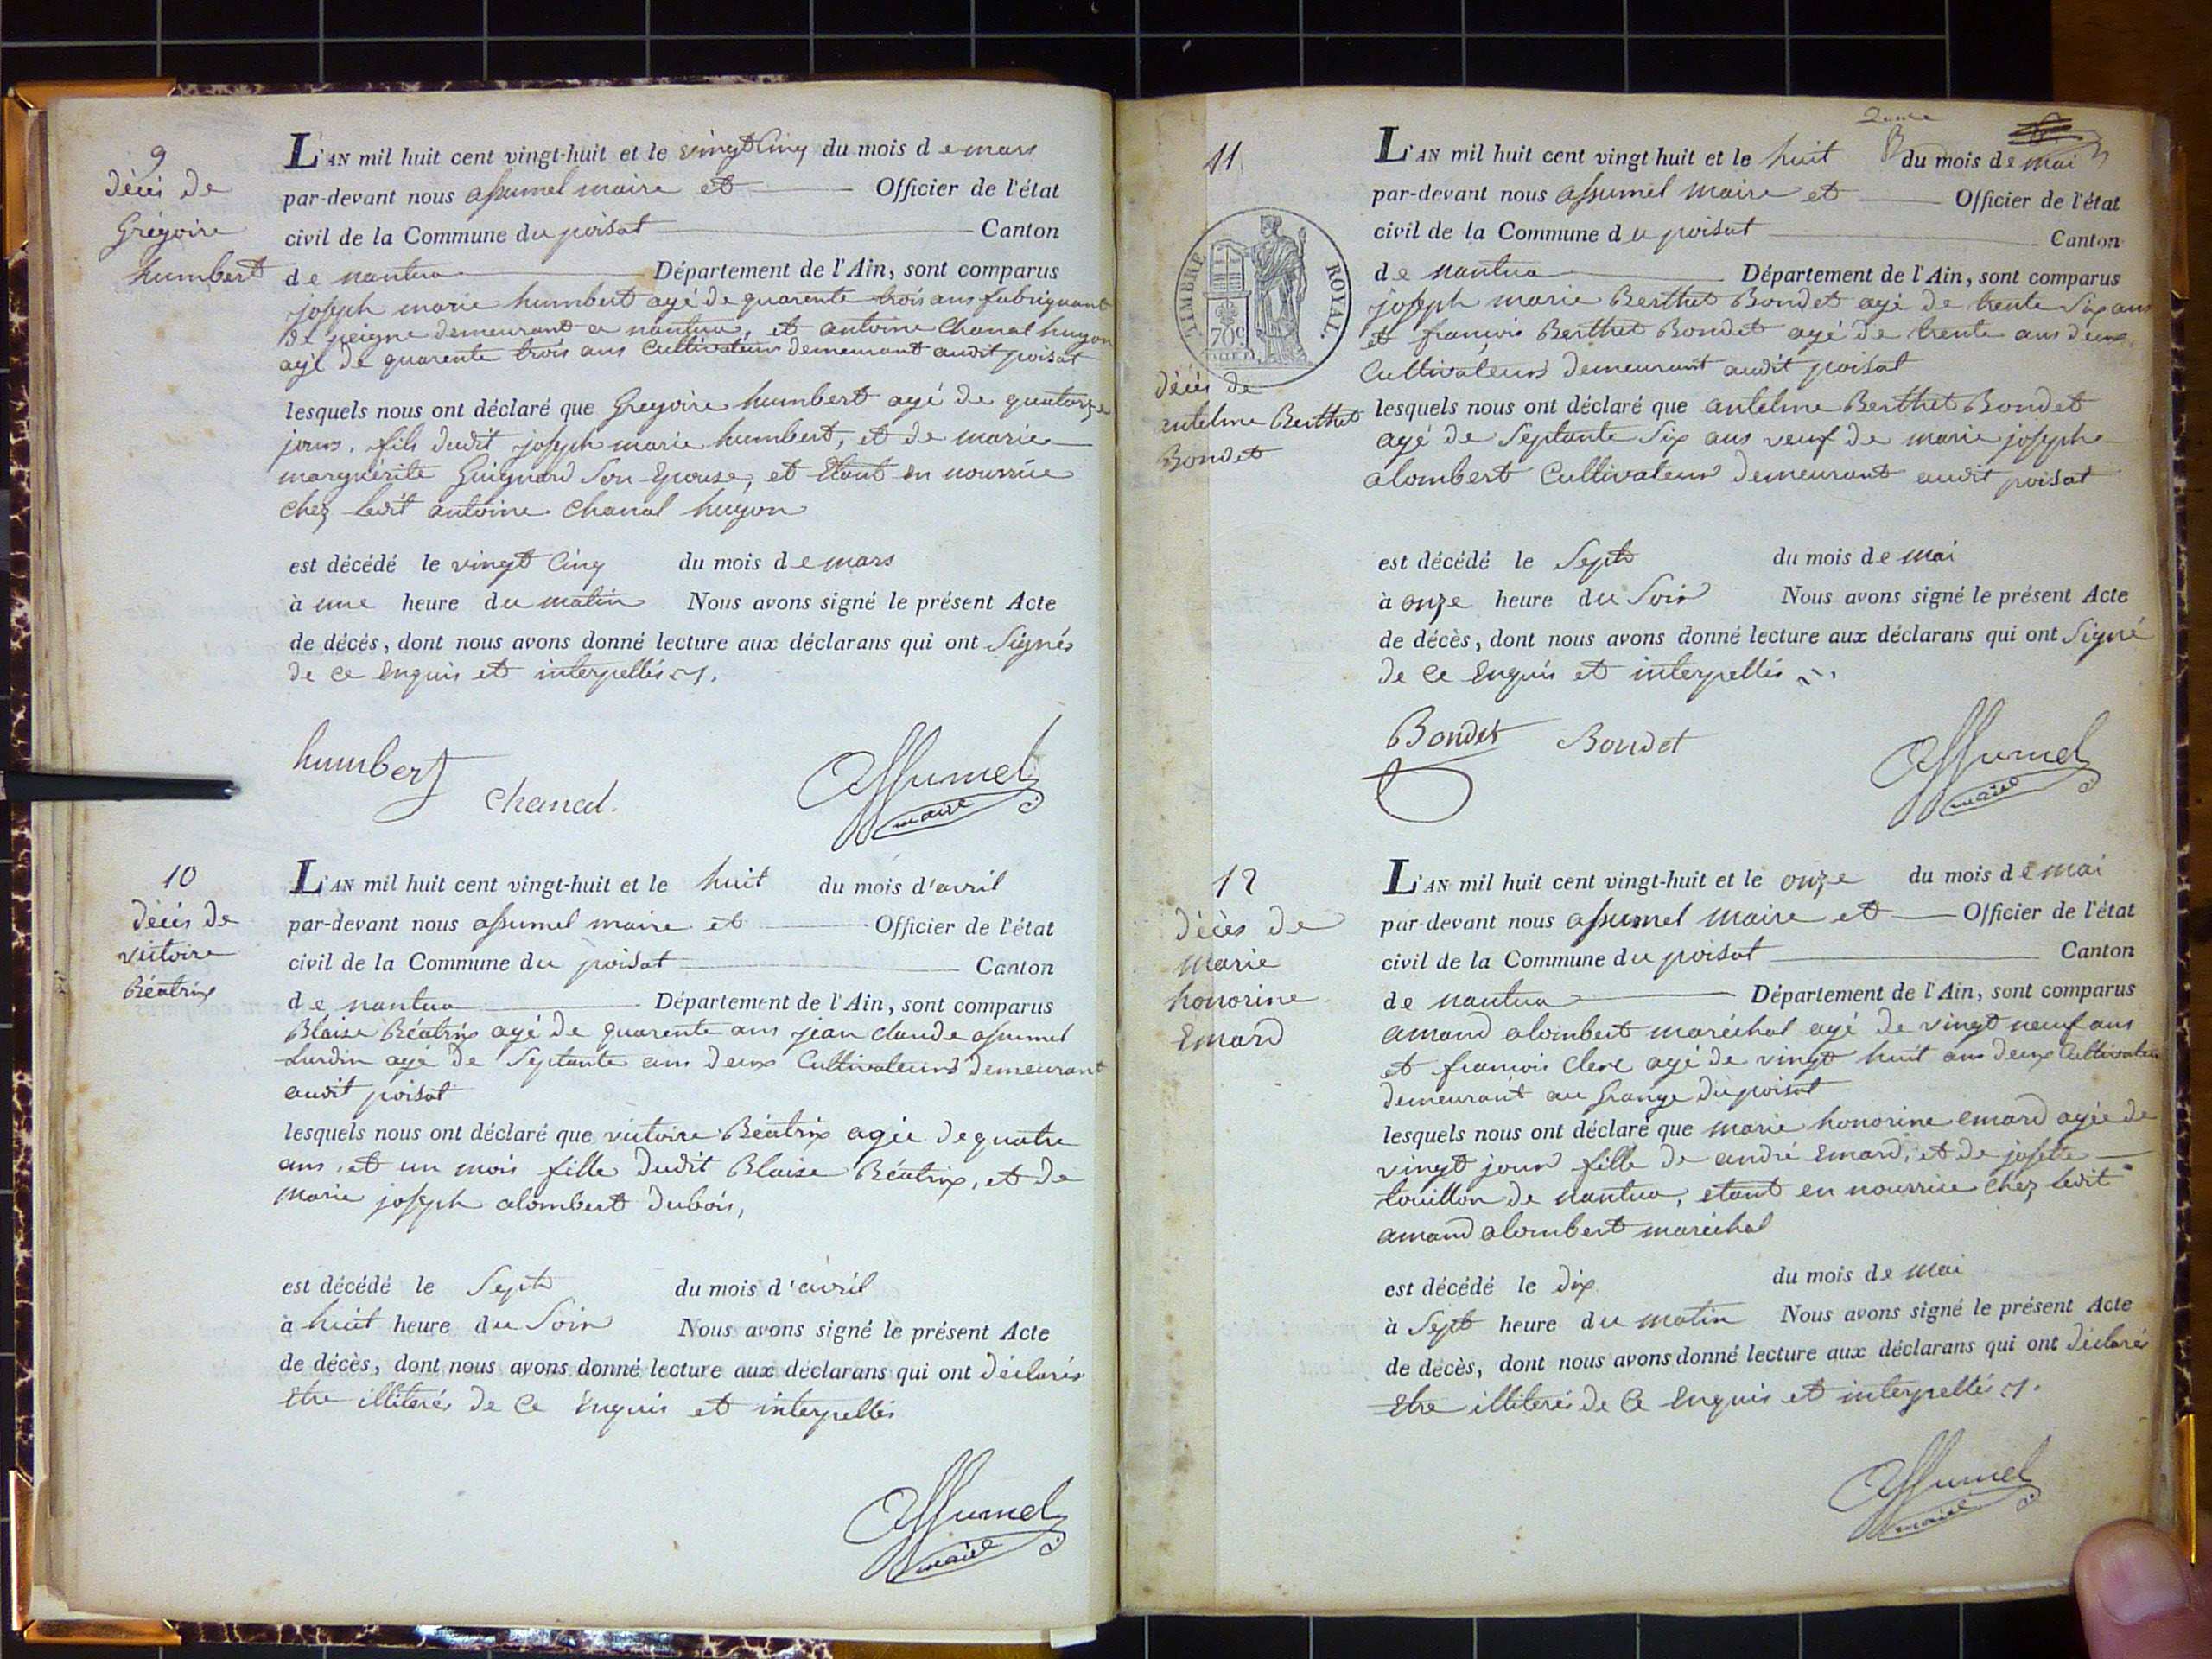 9
décès de
Grégoire
humbert
L'AN mil huit cent vingt-huit et le vingt Cinq du mois de mars
par-devant nous assumel maire et Officier de l'état
civil de la Commune du poisat Canton
de nantua Département de l'Ain, sont comparus
joseph marie humbert agé de quarente trois ans fabriquant
de peigne demeurant a nantua, et antoine Chanal hugon
agé de quarente trois ans Cultivateur demeurant audit poisat
lesquels nous ont déclaré que Gregoire humbert agé de quatorze
jours, fils dudit joseph marie humbert, et de marie
marguérite Guignard Son Epouse, et Etant en nourrice
chez ledit antoine Chanal hugon
est décédé le vingt Cinq du mois de mars
à une heure du matin Nous avons signé le présent Acte
de décès, dont nous avons donné lecture aux déclarans qui ont Signés
de ce Enquis et interpellés
humbert
Chanal.
Assumel
maire
10
décès de
victoire
Béatrix
L'AN mil huit cent vingt-huit et le huit du mois d'avril
par-devant nous assumel maire et Officier de l'état
civil de la Commune du poisat Canton
de nantua Département de l'Ain, sont comparus
Blaise Béatrix agé de quarente ans jean claude assumel
Lurdin agé de Septante ans deux Cultivateurs demeurant
audit poisat
lesquels nous ont déclaré que victoire Béatrix agée de quatre
ans, et un mois fille dudit Blaise Béatrix, et de
marie joseph alombert dubois,
est décédé le Sept du mois d'avril
à huit heure du Soir Nous avons signé le présent Acte
de décès, dont nous avons donné lecture aux déclarans qui ont déclarés
Etre illiterés de Ce Enquis et interpellés
Assumel
maire
2eme
11
TIMBRE ROYAL.
70c
décès de
antelme Berthet
Bondet
L'AN mil huit cent vingt huit et le huit du mois de mai
par-devant nous assumel maire et Officier de l'état
civil de la Commune du poisat Canton
de nantua Département de l'Ain, sont comparus
joseph marie Berthet Bondet agé de trente Six ans
et francois Berthet Bondet agé de trente ans deux
Cultivateurs demeurant audit poisat
lesquels nous ont déclaré que antelme Berthet Bondet
agé de Septante Six ans veuf de marie joseph
alombert Cultivateur demeurant audit poisat
est décédé le Sept du mois de mai
à onze heure du Soir Nous avons signé le présent Acte
de décès, dont nous avons donné lecture aux déclarans qui ont Signé
de Ce Enquis et interpellés
Bondet Bondet
Assumel
maire
12
décès de
marie
honorine
Emard
L'AN mil huit cent vingt-huit et le onze du mois de mai
par-devant nous assumel maire et Officier de l'état
civil de la Commune du poisat Canton
de nantua Département de l'Ain, sont comparus
amand alombert maréchal agé de vingt neuf ans
et francois Clerc agé de vingt huit ans deux Cultivateurs
demeurant au Grange du poisat
lesquels nous ont déclaré que marie honorine emard agée de
vingt jours fille de andré Emard, et de josette
touillon de nantua, etant en nourrice chez ledit
amand alombert maréchal
est décédé le dix du mois de mai
à Sept heure du matin Nous avons signé le présent Acte
de décès, dont nous avons donné lecture aux déclarans qui ont déclarés
Etre illiterés de Ce Enquis et interpellés
Assumel
maire